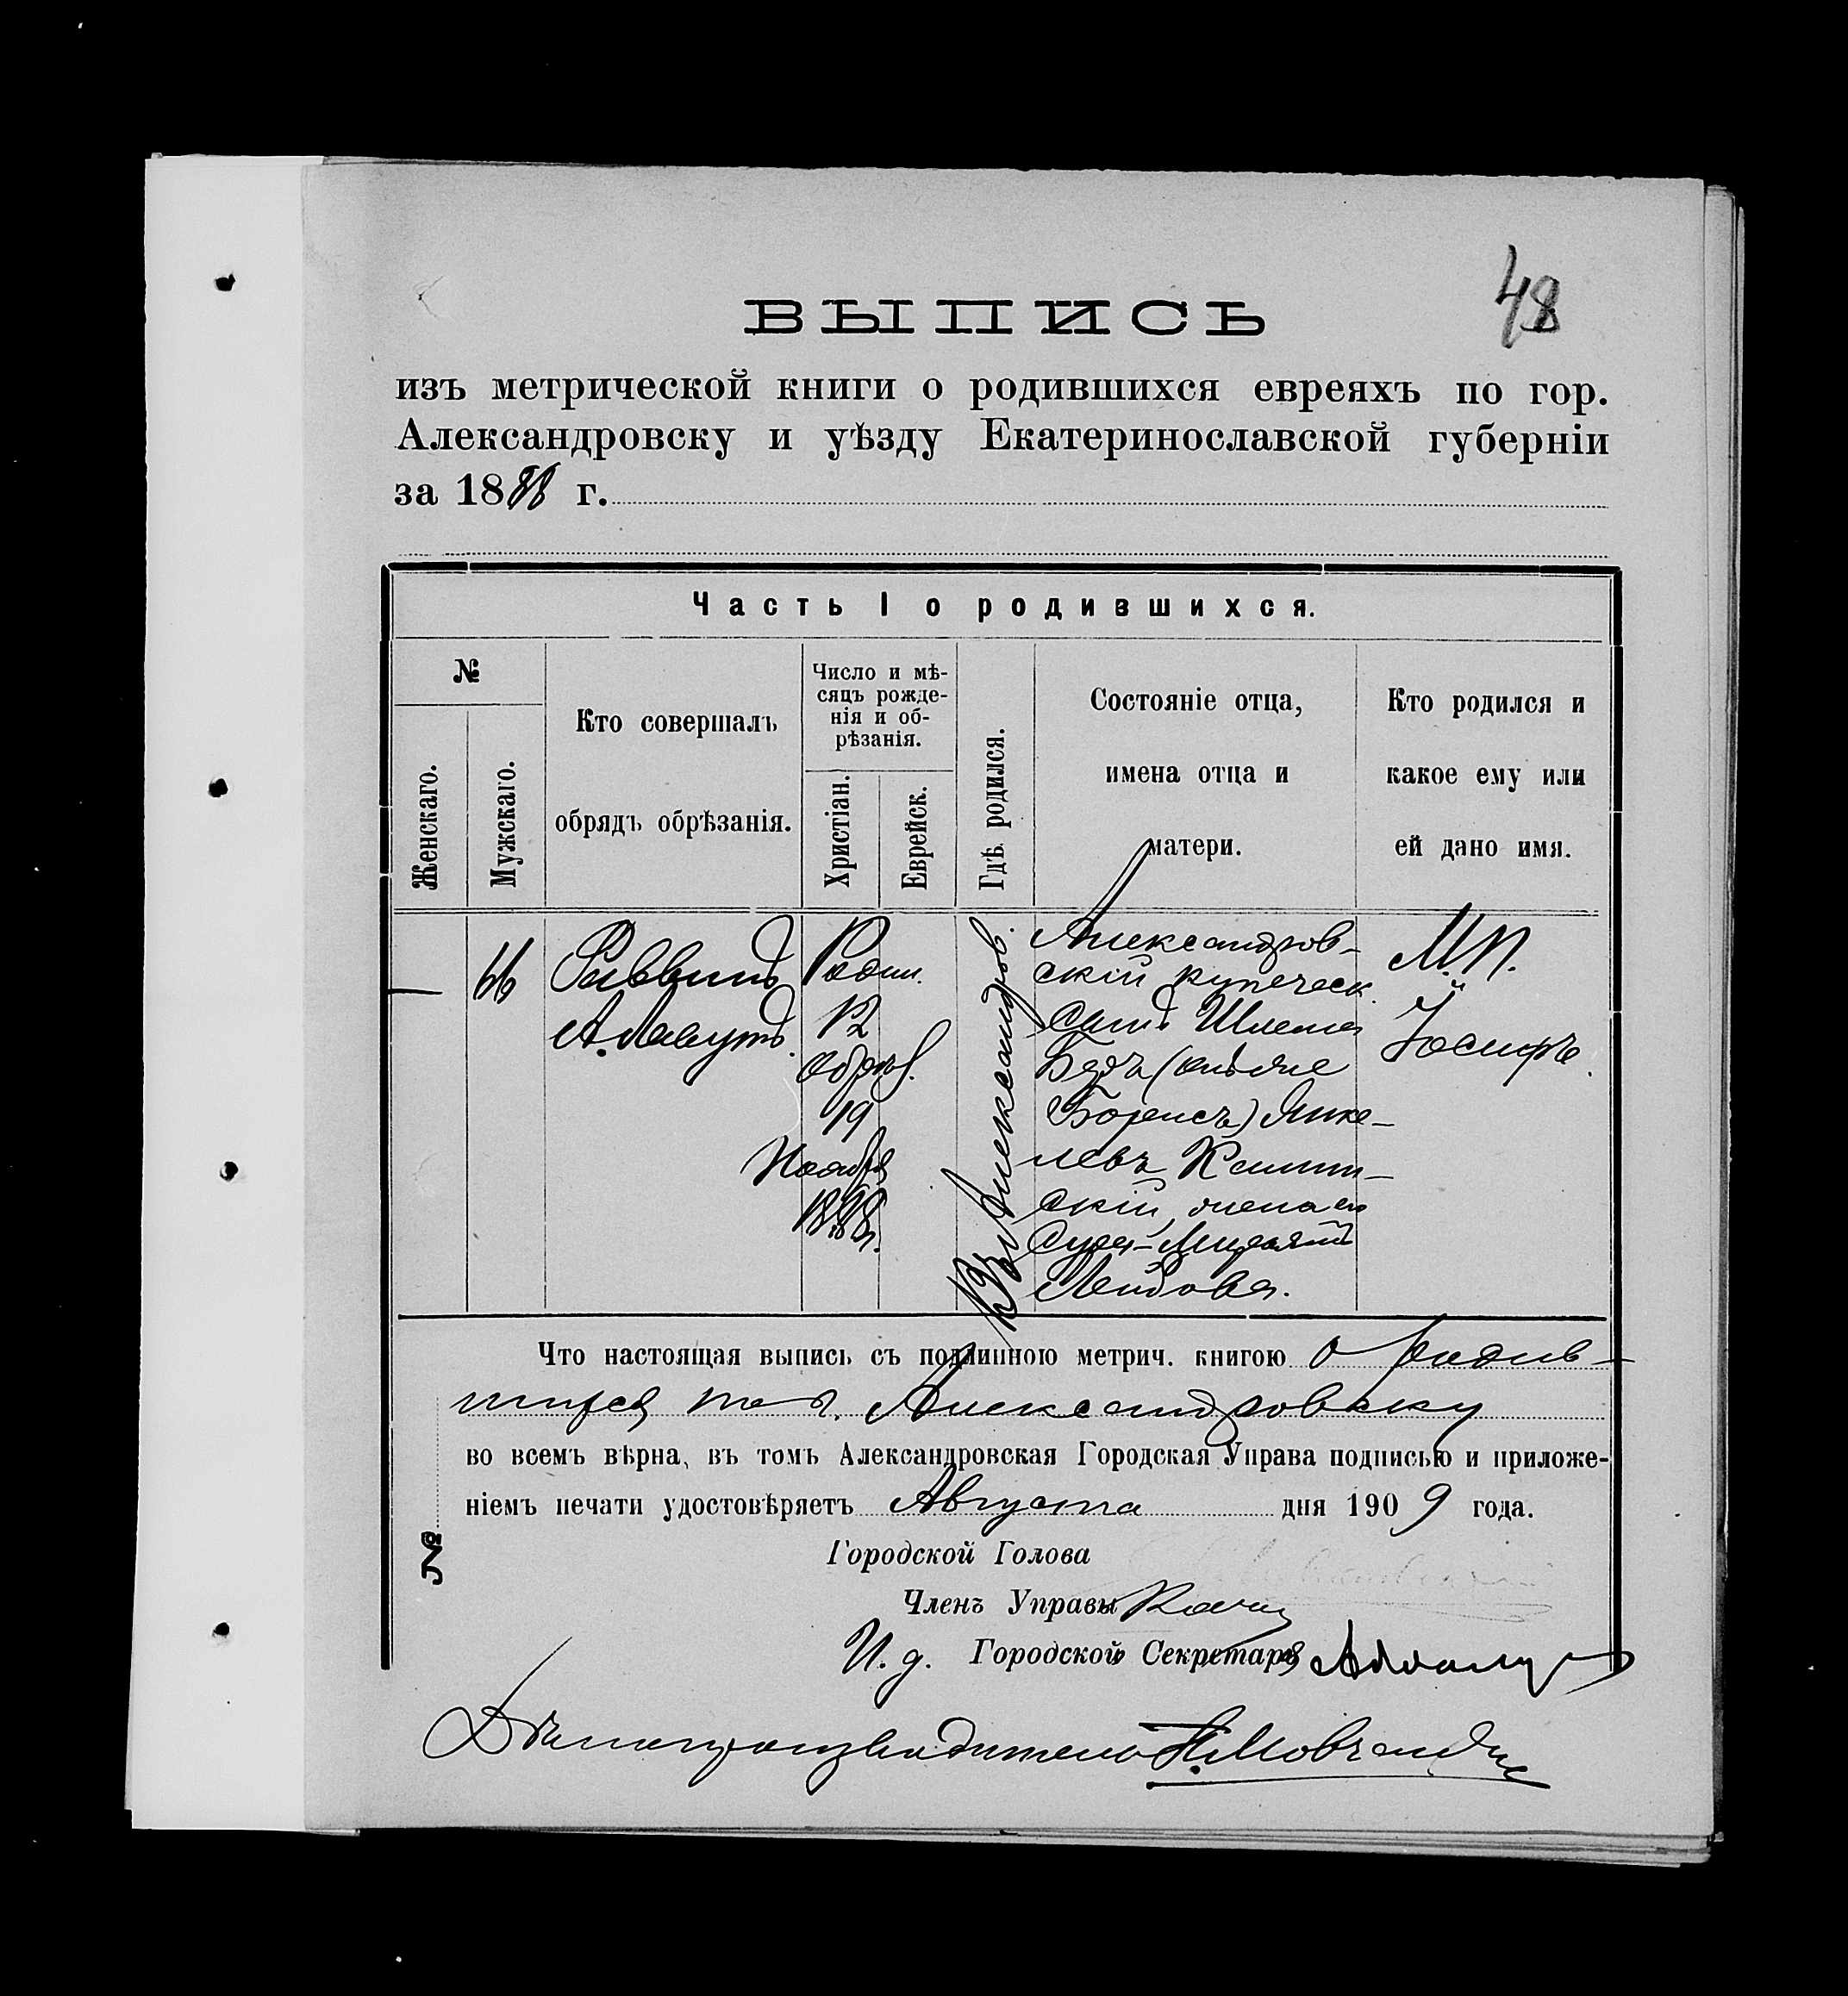 48
ВЫПИСЬ
изъ метрической книги о родившихся евреяхъ по гор.
Александровску и уѣзду Екатеринославской губерніи
за 1888 г.
Часть I о родившихся.
№
Женскаго.
Мужскаго.
Кто совершалъ
обрядъ обрѣзанія.
Число и мѣ-
сяцъ рожде-
нія и об-
рѣзанія.
Христіан.
Еврейск.
Гдѣ родился.
Состояніе отца,
имена отца и
матери.
Кто родился и
какое ему или
ей дано имя.
—
66
Раввинъ
А. Лавутъ.
Родил.
12
обрѣз.
19
Ноября
1888 г.
Въ Александров.
Александров-
скій купеческ.
сынъ Шлема
Беръ (онъ же
Борисъ) Янке-
левъ
скій, жена его
Сура-
Лейбова.
М.П.
Іосифъ.
Что настоящая выпись съ подлинною метрич. книгою о родив-
шихся по г. Александровску
во всемъ вѣрна, въ томъ Александровская Городская Управа подписью и приложе-
ніемъ печати удостовѣряетъ Августа дня 1909 года.
№
Городской Голова
Членъ Управы
И. д. Городской Секретаря
Дѣлопроизводитель